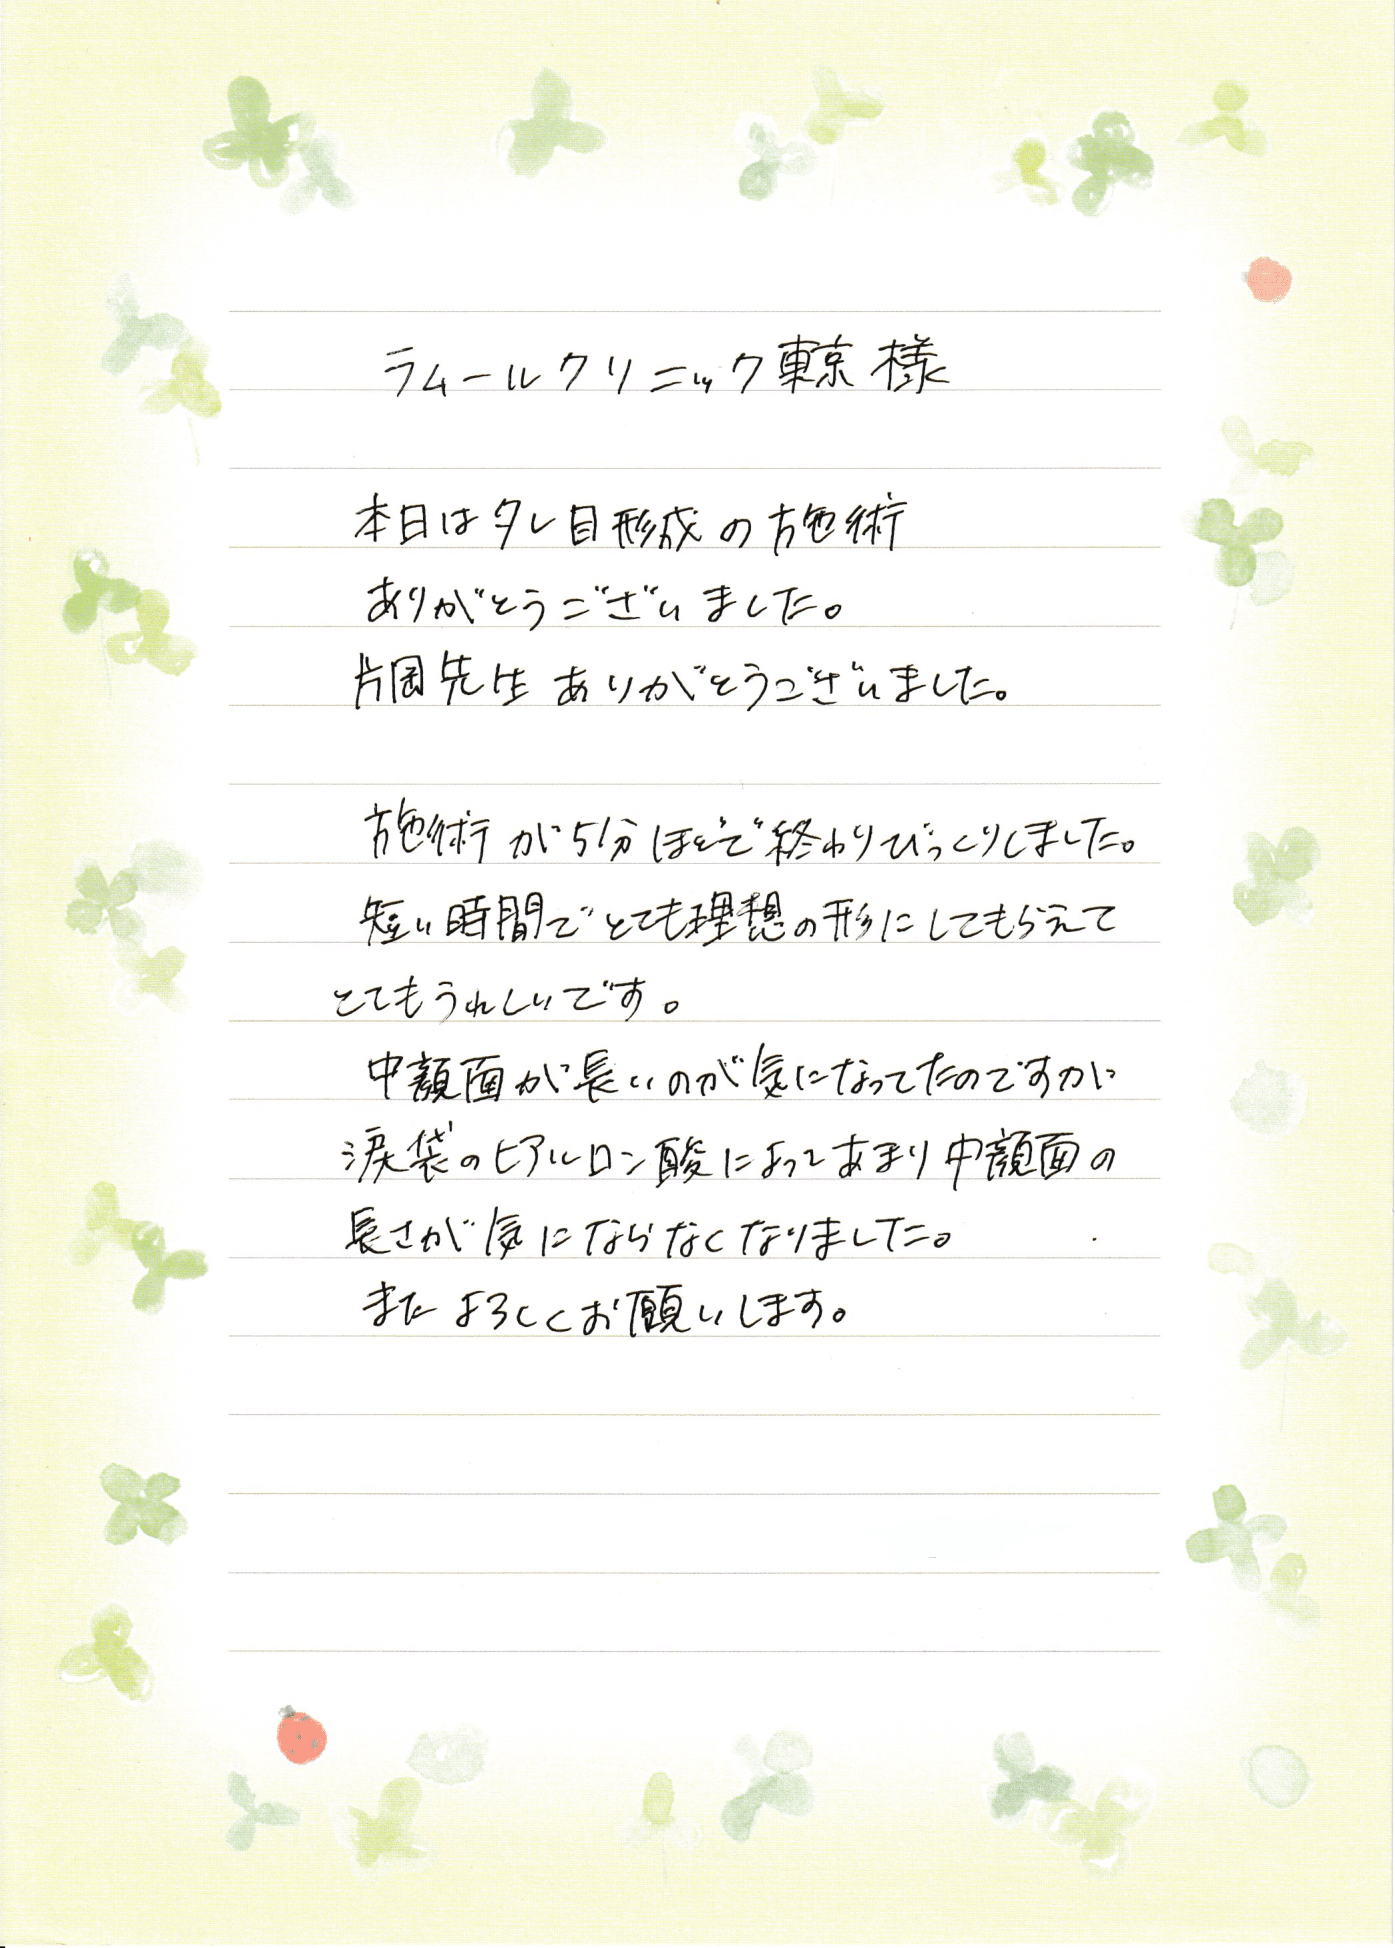 ラムールクリニック東京 様
本日はタレ目形成の施術
ありがとうございました。
片岡先生 ありがとうございました。
施術が5分ほどで終わりびっくりしました。
短い時間でとても理想の形にしてもらえて
とてもうれしいです。
中顔面が長いのが気になってたのですが
涙袋のヒアルロン酸によってあまり中顔面の
長さが気にならなくなりました。
またよろしくお願いします。